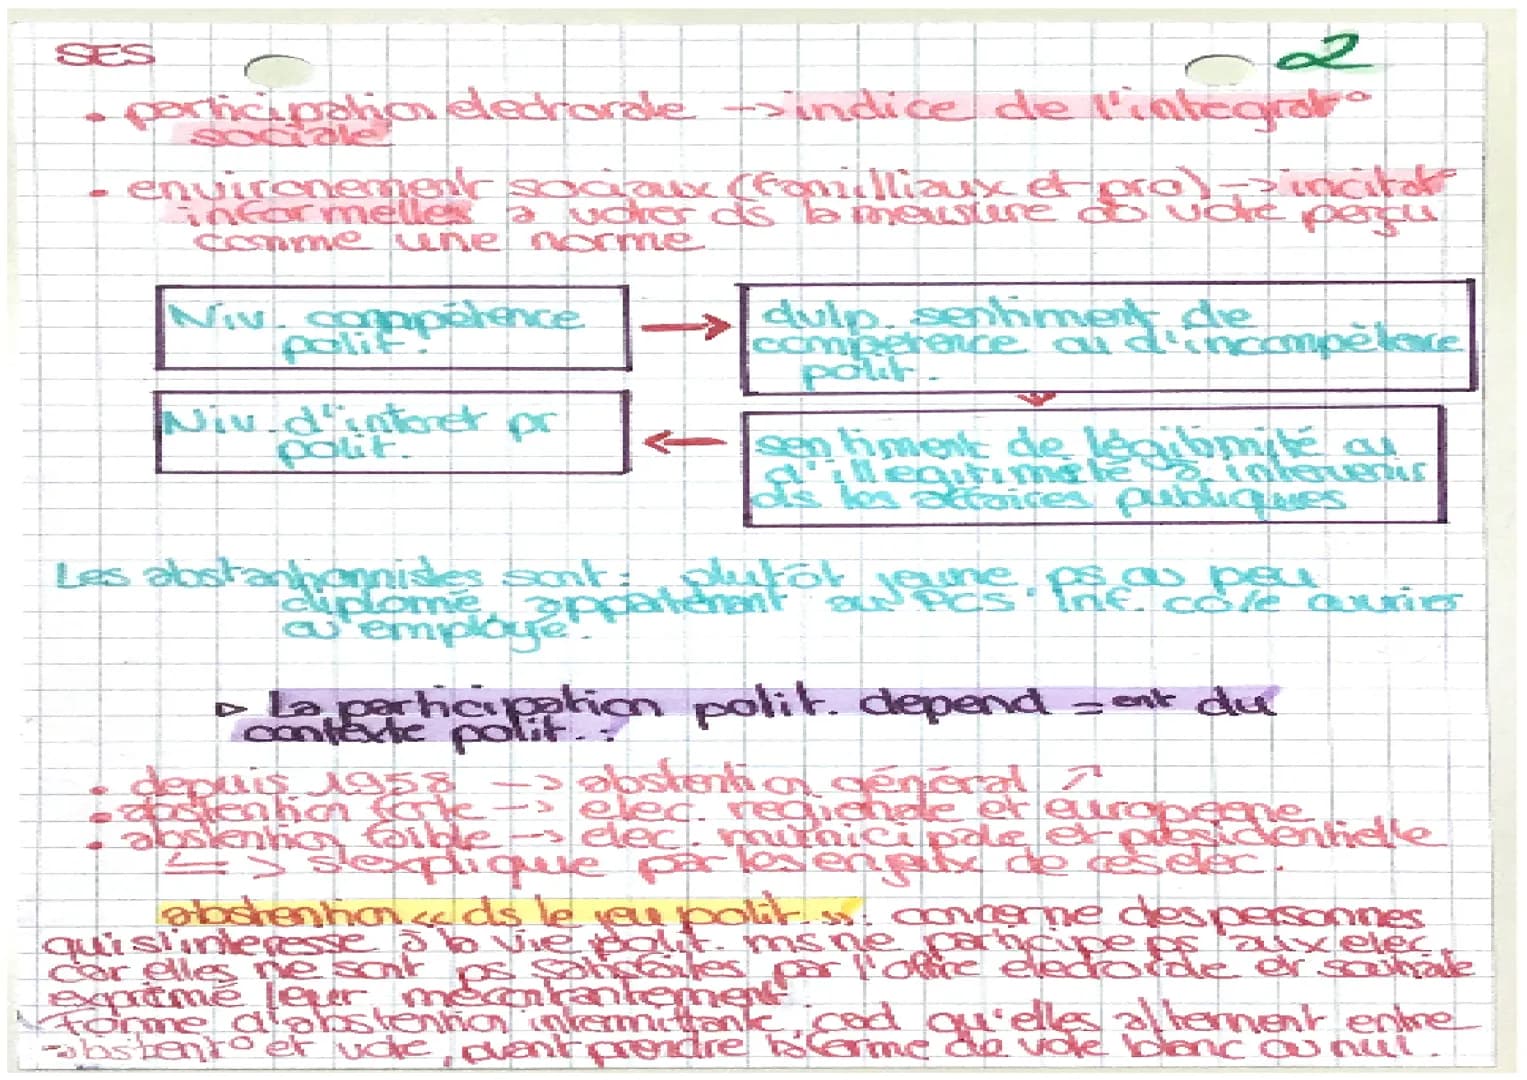 SES
2
• participation electorale -> indice de l'integrat°
sociale
• environement sociaux (familliaux et pro) -> incitat°
informelles à voter ds la meusure où vote perçu
comme une norme
Niv. compétence
polit.
dvlp. sentiment de
compétence ou d'incompétence
polit.
Niv. d'interet pr
polit.
sentiment de légitimité ou
d'illegitimeté à intervenir
ds les affaires publiques
Les abstentionnistes sont : plutôt jeune ps ou peu
diplomé, appartenant aux PCS Inf. co/e ouvrier
ou employé.
▷ La participation polit. depend = ent du
contexte polit. :
• depuis 1958 -> abstention général ↗
• abstention forte -> elec. regionale et europeene
• abstention faible -> elec. municipale et présidentielle
<=> s'explique par les enjeux de ces elec.
abstention « ds le jeu polit » : concerne des personnes
qui s'interesse à la vie polit. ms ne participe ps aux elec
car elles ne sont ps satisfaites par l'offre electorale et souhaite
exprimé leur mécontantement.
Forme d'abstention intermittante, cad qu'elles alternent entre
abstent° et vote, peuvent prendre la forme de vote blanc ou nul.